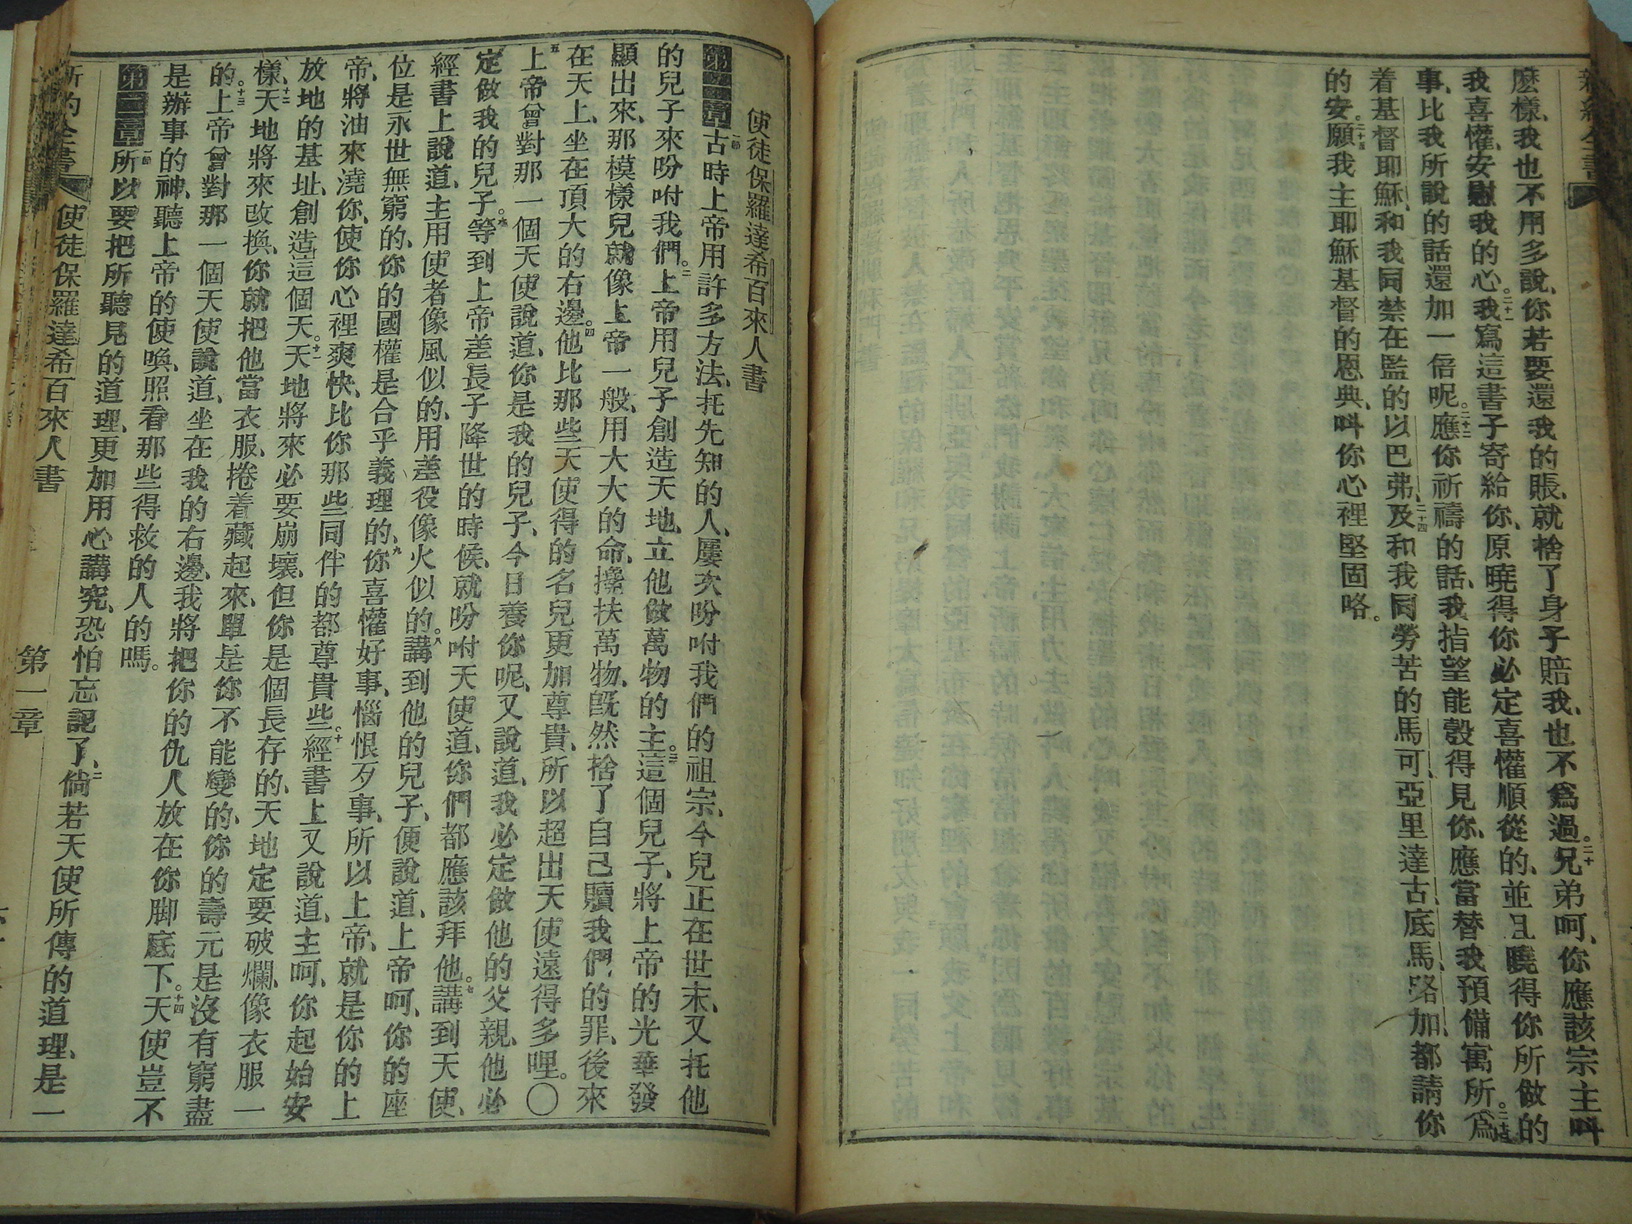 新約全書
麽樣、我也不用多說、你若要還我的賬、就捨了身子賠我、也不爲過。二十兄弟呵、你應該宗主呌
我喜懽、安慰我的心。二十一我寫這書子寄給你、原曉得你必定喜懽順從的、並且曉得你所做的
事、比我所說的話還加一倍呢。二十二應你祈禱的話、我指望能彀得見你、應當替我預備寓所。二十三爲
着基督耶穌、和我同禁在監的以巴弗、二十四及和我同勞苦的馬可、亞里達古、底馬、路加、都請你
的安。二十五願我主耶穌基督的恩典、呌你心裡堅固咯。
使徒保羅達希百來人書
第一章一節古時上帝用許多方法、托先知的人、屢次吩咐我們的祖宗、今兒正在世末、又托他
的兒子來吩咐我們。二上帝用兒子創造天地、立他做萬物的主。三這個兒子、將上帝的光華發
顯出來、那模樣兒就像上帝一般、用大大的命、攙扶萬物、旣然捨了自己贖我們的罪、後來
在天上、坐在頂大的右邊。四他比那些天使得的名兒更加尊貴、所以超出天使遠得多哩。〇
五上帝曾對那一個天使說道、你是我的兒子、今日養你呢、又說道、我必定做他的父親、他必
定做我的兒子。六等到上帝差長子降世的時候、就吩咐天使道、你們都應該拜他。七講到天使、
經書上說道、主用使者像風似的、用差役像火似的。八講到他的兒子、便說道、上帝呵、你的座
位是永世無窮的、你的國權是合乎義理的、九你喜懽好事、惱恨歹事、所以上帝、就是你的上
帝、將油來澆你、使你心裡爽快、比你那些同伴的都尊貴些。十經書上又說道、主呵、你起始安
放地的基址、創造這個天。十一天地將來必要崩壞、但你是個長存的、天地定要破爛、像衣服一
樣、十二天地將來改換、你就把他當衣服、捲着藏起來、單是你不能變的、你的壽元是沒有窮盡
的。十三上帝曾對那一個天使說道、坐在我的右邊、我將把你的仇人放在你脚底下。十四天使豈不
是辦事的神、聽上帝的使喚、照看那些得救的人的嗎。
第二章一節所以要把所聽見的道理、更加用心講究、恐怕忘記了、二倘若天使所傳的道理、是一
新約全書 使徒保羅達希百來人書 第一章